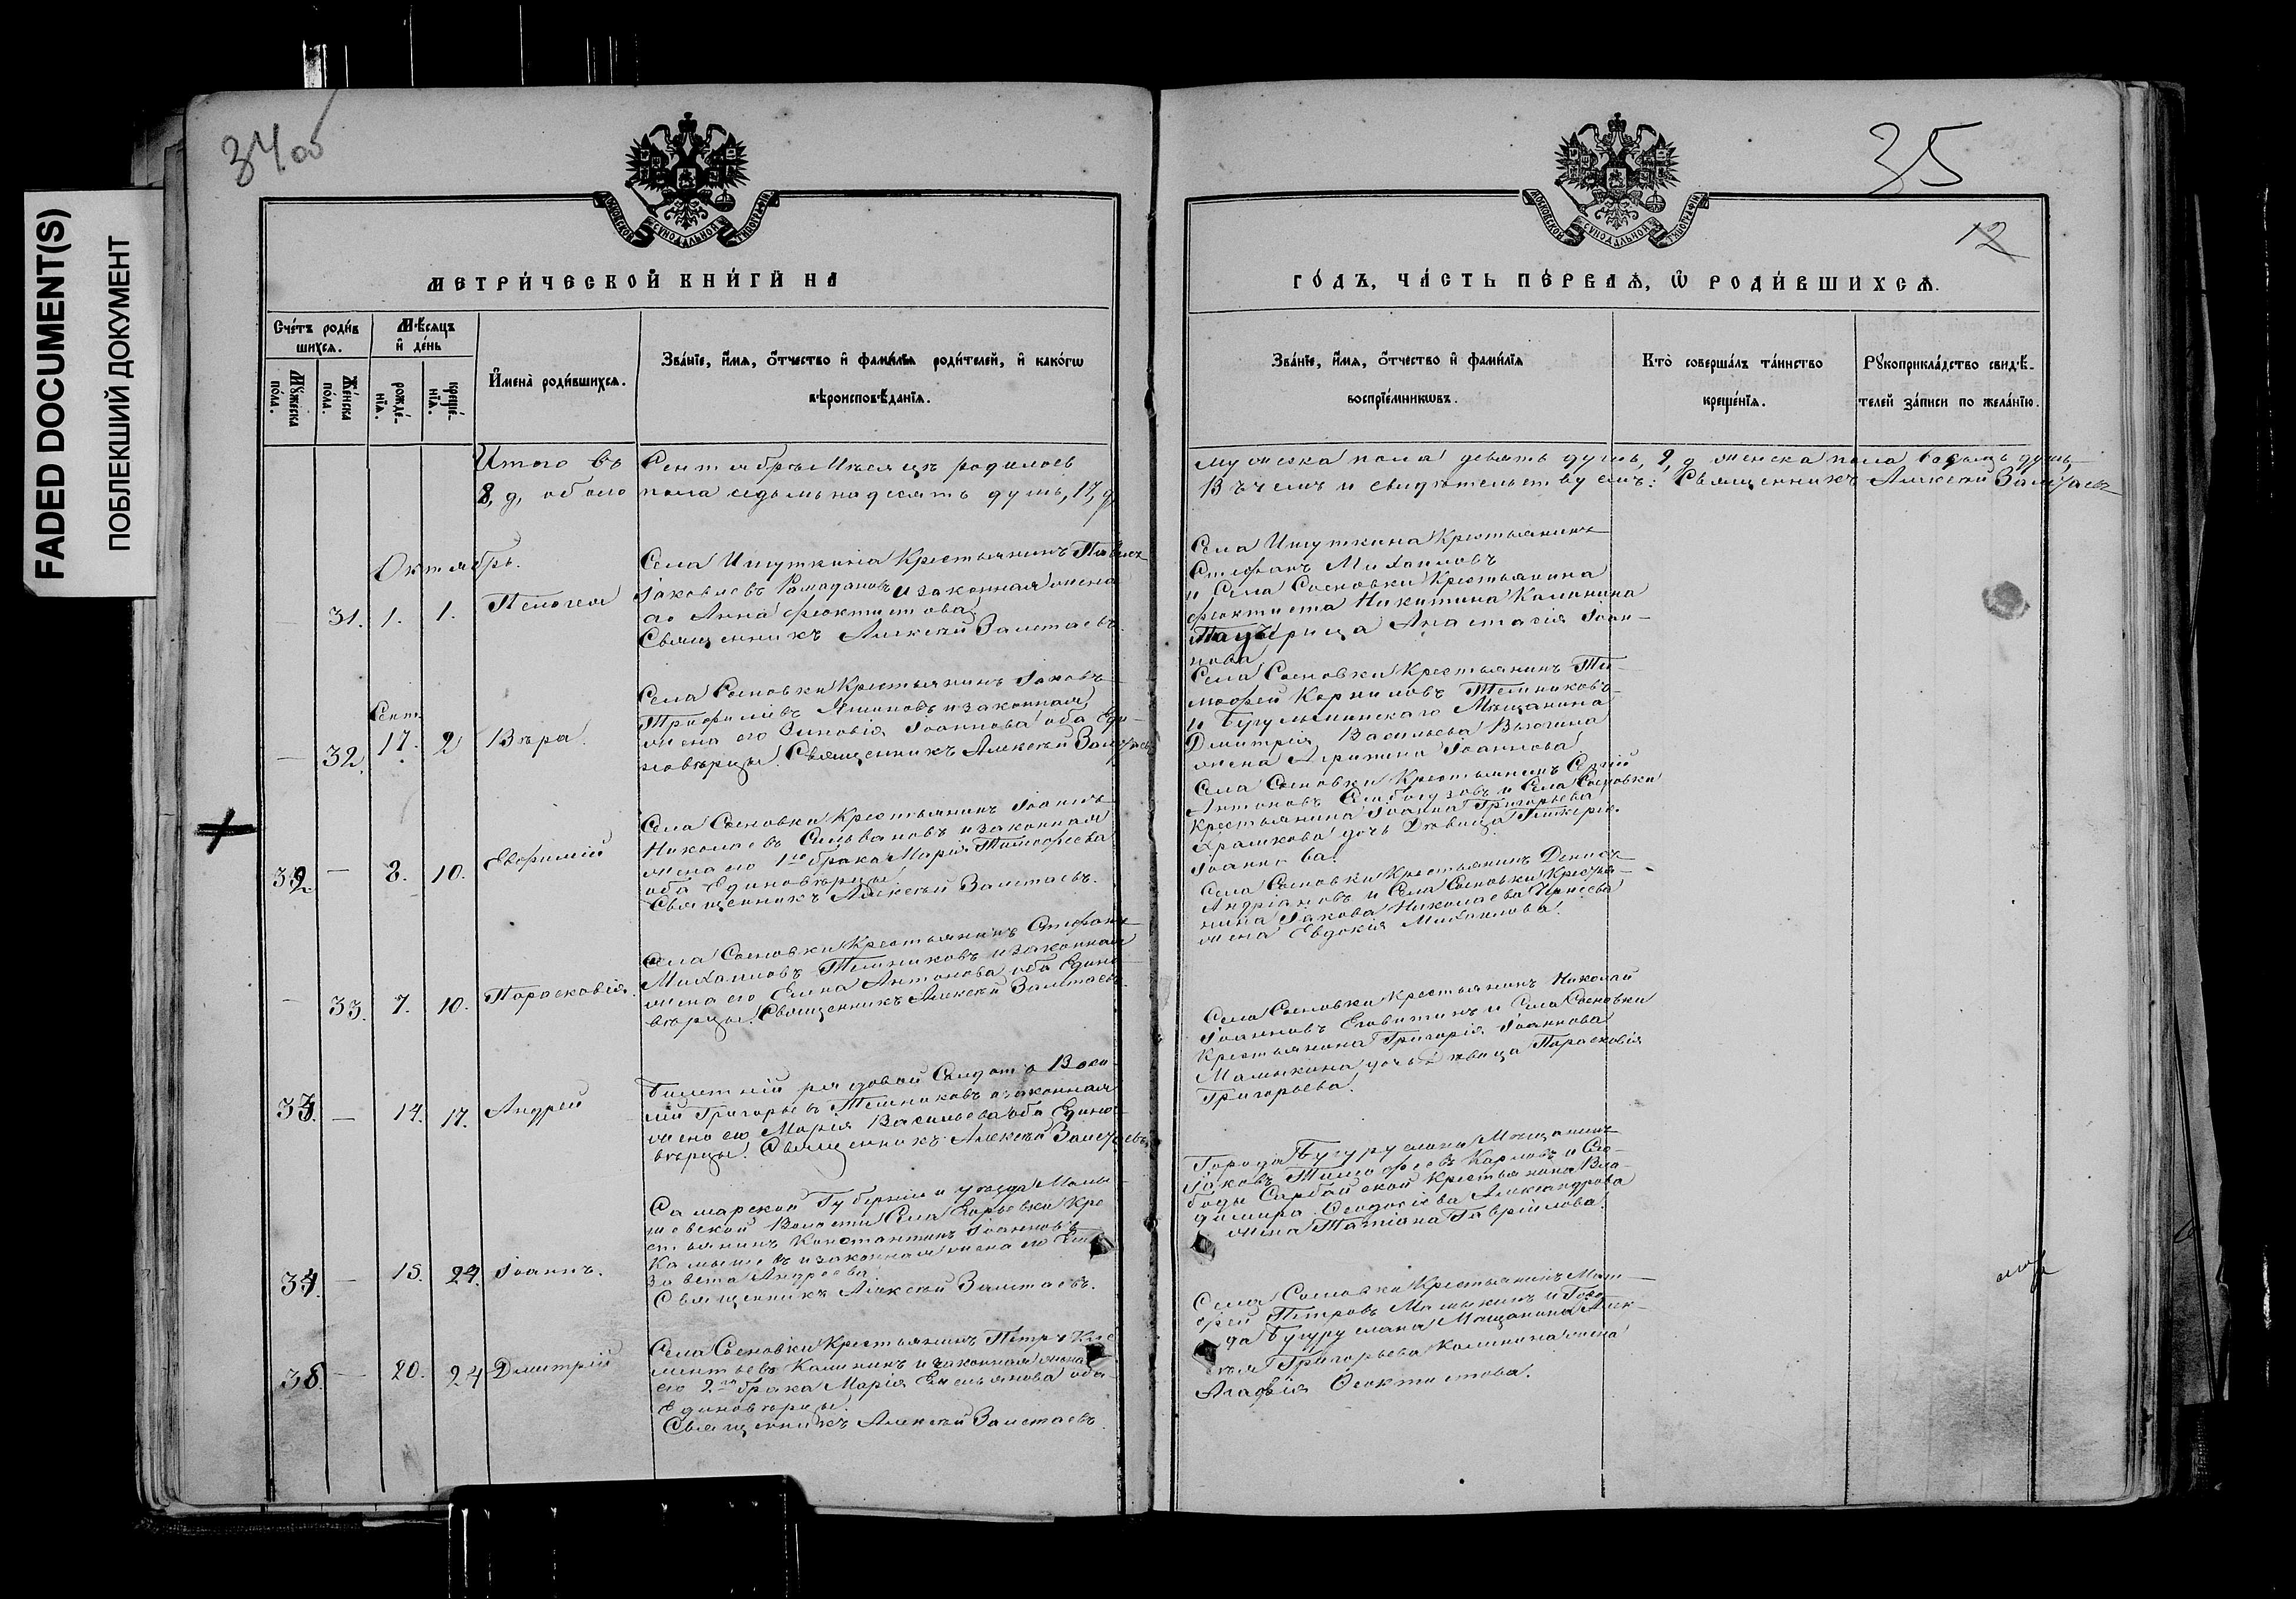 FADED DOCUMENT(S)
ПОБЛЕКШИЙ ДОКУМЕНТ
34 об
МОСКОВСКОЙ СѴНОДАЛЬНОЙ ТИПОГРАФІИ
МЕТРИ́ЧЕСКОЙ КНИ́ГИ НА
Сче́тъ роди́в
шихся.
Мѣ́сяцъ
и҆ де́нь
Мꙋ́жеска
по́ла.
Же́нска
по́ла.
рожде́-
нїѧ.
креще́-
нїѧ.
И҆мена̀ роди́вшихся.
Зва́нїе, и҆́мѧ, ѻ҆́тчество и҆ фами́лїѧ роди́телей, и҆ како́гѡ
вѣроисповѣ́данїѧ.
Итого въ Сентябрѣ Мѣсяцѣ родилось
8, д, обоего пола седмьнадесять душъ, 17, д,
Октябрь.
31. 1. 1. Пелагея
Села Ишуткина Крестьянинъ Павелъ
Іаковлевъ Рамадановъ и законная жена
его Анна Феоктистова.
Священникъ Алексѣй Залетаевъ
Сент.
32. 17. 2 Вѣра.
Села Сосновки Крестьянинъ Іаковъ
жена его Зиновія Іоаннова оба Еди-
новѣрцы. Священникъ Алексѣй Залетаевъ
32 — 8. 10. Евфимій
Села Сосновки Крестьянинъ Іоаннъ
Николаевъ Сильвановъ и законная
жена его 1го брака Марія Тимофеева
оба Единовѣрцы.
Священникъ Алексѣй Залетаевъ.
— 33. 7. 10. Парасковія.
Села Сосновки Крестьянинъ Стефанъ
Михаиловъ Темниковъ и законная
жена его Елена Антонова оба Едино-
вѣрцы. Священникъ Алексѣй Залетаевъ.
33. — 14. 17. Андрей
Билетный рядовой Солдатъ Васи-
лій Григорьевъ Темниковъ и законная
жена его Марія Васильева оба Едино-
вѣрцы. Священникъ Алексѣй Залетаевъ
34. — 15. 24. Іоаннъ.
Самарской Губерніи и уѣзда
Волости Села Крe
стьянинъ Константинъ Іоанновъ
и законная жена его Ели
завета Андреева
Священникъ Алексѣй Залетаевъ.
35. — 20. 24 Дмитрій
Села Сосновки Крестьянинъ Петръ Кле
ментьевъ Калининъ и законная жена
его 2го брака Марія Емельянова оба
Единовѣрцы.
Священникъ Алексѣй Залетаевъ.
35
12
МОСКОВСКОЙ СѴНОДАЛЬНОЙ ТИПОГРАФІИ
ГО́ДЪ, ЧА́СТЬ ПЕ́РВАѦ, Ѡ҆ РОДИ́ВШИХСѦ.
Зва́нїе, и҆́мѧ, ѻ҆́тчество и҆ фами́лїѧ
воспрїе́мникѡвъ.
Кто̀ соверша́лъ та́инство
креще́нїѧ.
Рꙋкоприкла́дство свидѣ́-
телей за́писи по жела́нїю.
мужеска пола девять душъ, 9, д женска пола восьмь душъ,
Въ чемъ и свидѣтельствуемъ: Священникъ Алексѣй Залетаевъ
Села Ишуткина Крестьянинъ
Стефанъ Михаиловъ
и Села Сосновки Крестьянина
Феоктиста Никитина Калинина
Анастасія Іоан-
нова
Села Сосновки Крестьянинъ Ти-
мофей Корниловъ Темниковъ
и Бугульминскаго Мѣщанина
Дмитрія Васильева
жена Агрипина Іоаннова
Села Сосновки Крестьянинъ Сергій
Антоновъ и Села Сосновки
Крестьянина Іоанна Григорьева
Храмкова дочь Дѣвица
Іоаннова.
Села Сосновки Крестьянинъ Денисъ
Андріановъ и Села Сосновки Крестья-
нина Іакова Николаева
жена Евдокія Михаилова.
Села Сосновки Крестьянинъ Николай
Іоанновъ и Села Сосновки
Крестьянина Григорія Іоаннова
Малыкина дочь Дѣвица Парасковія
Григорьева.
Города Бугуруслана Мѣщанинъ
Іаковъ Тимофеевъ Карповъ и Сло-
боды Сарбайской Крестьянина Вла-
димира Феодосіева Александрова
жена Татіана Гавріилова.
Села Сосновки Крестьянинъ Мат-
фей Петровъ Малыкинъ и Горо-
да Бугуруслана Мѣщанина Алек-
сѣя Григорьева Калинина жена
Агафія Феоктистова.